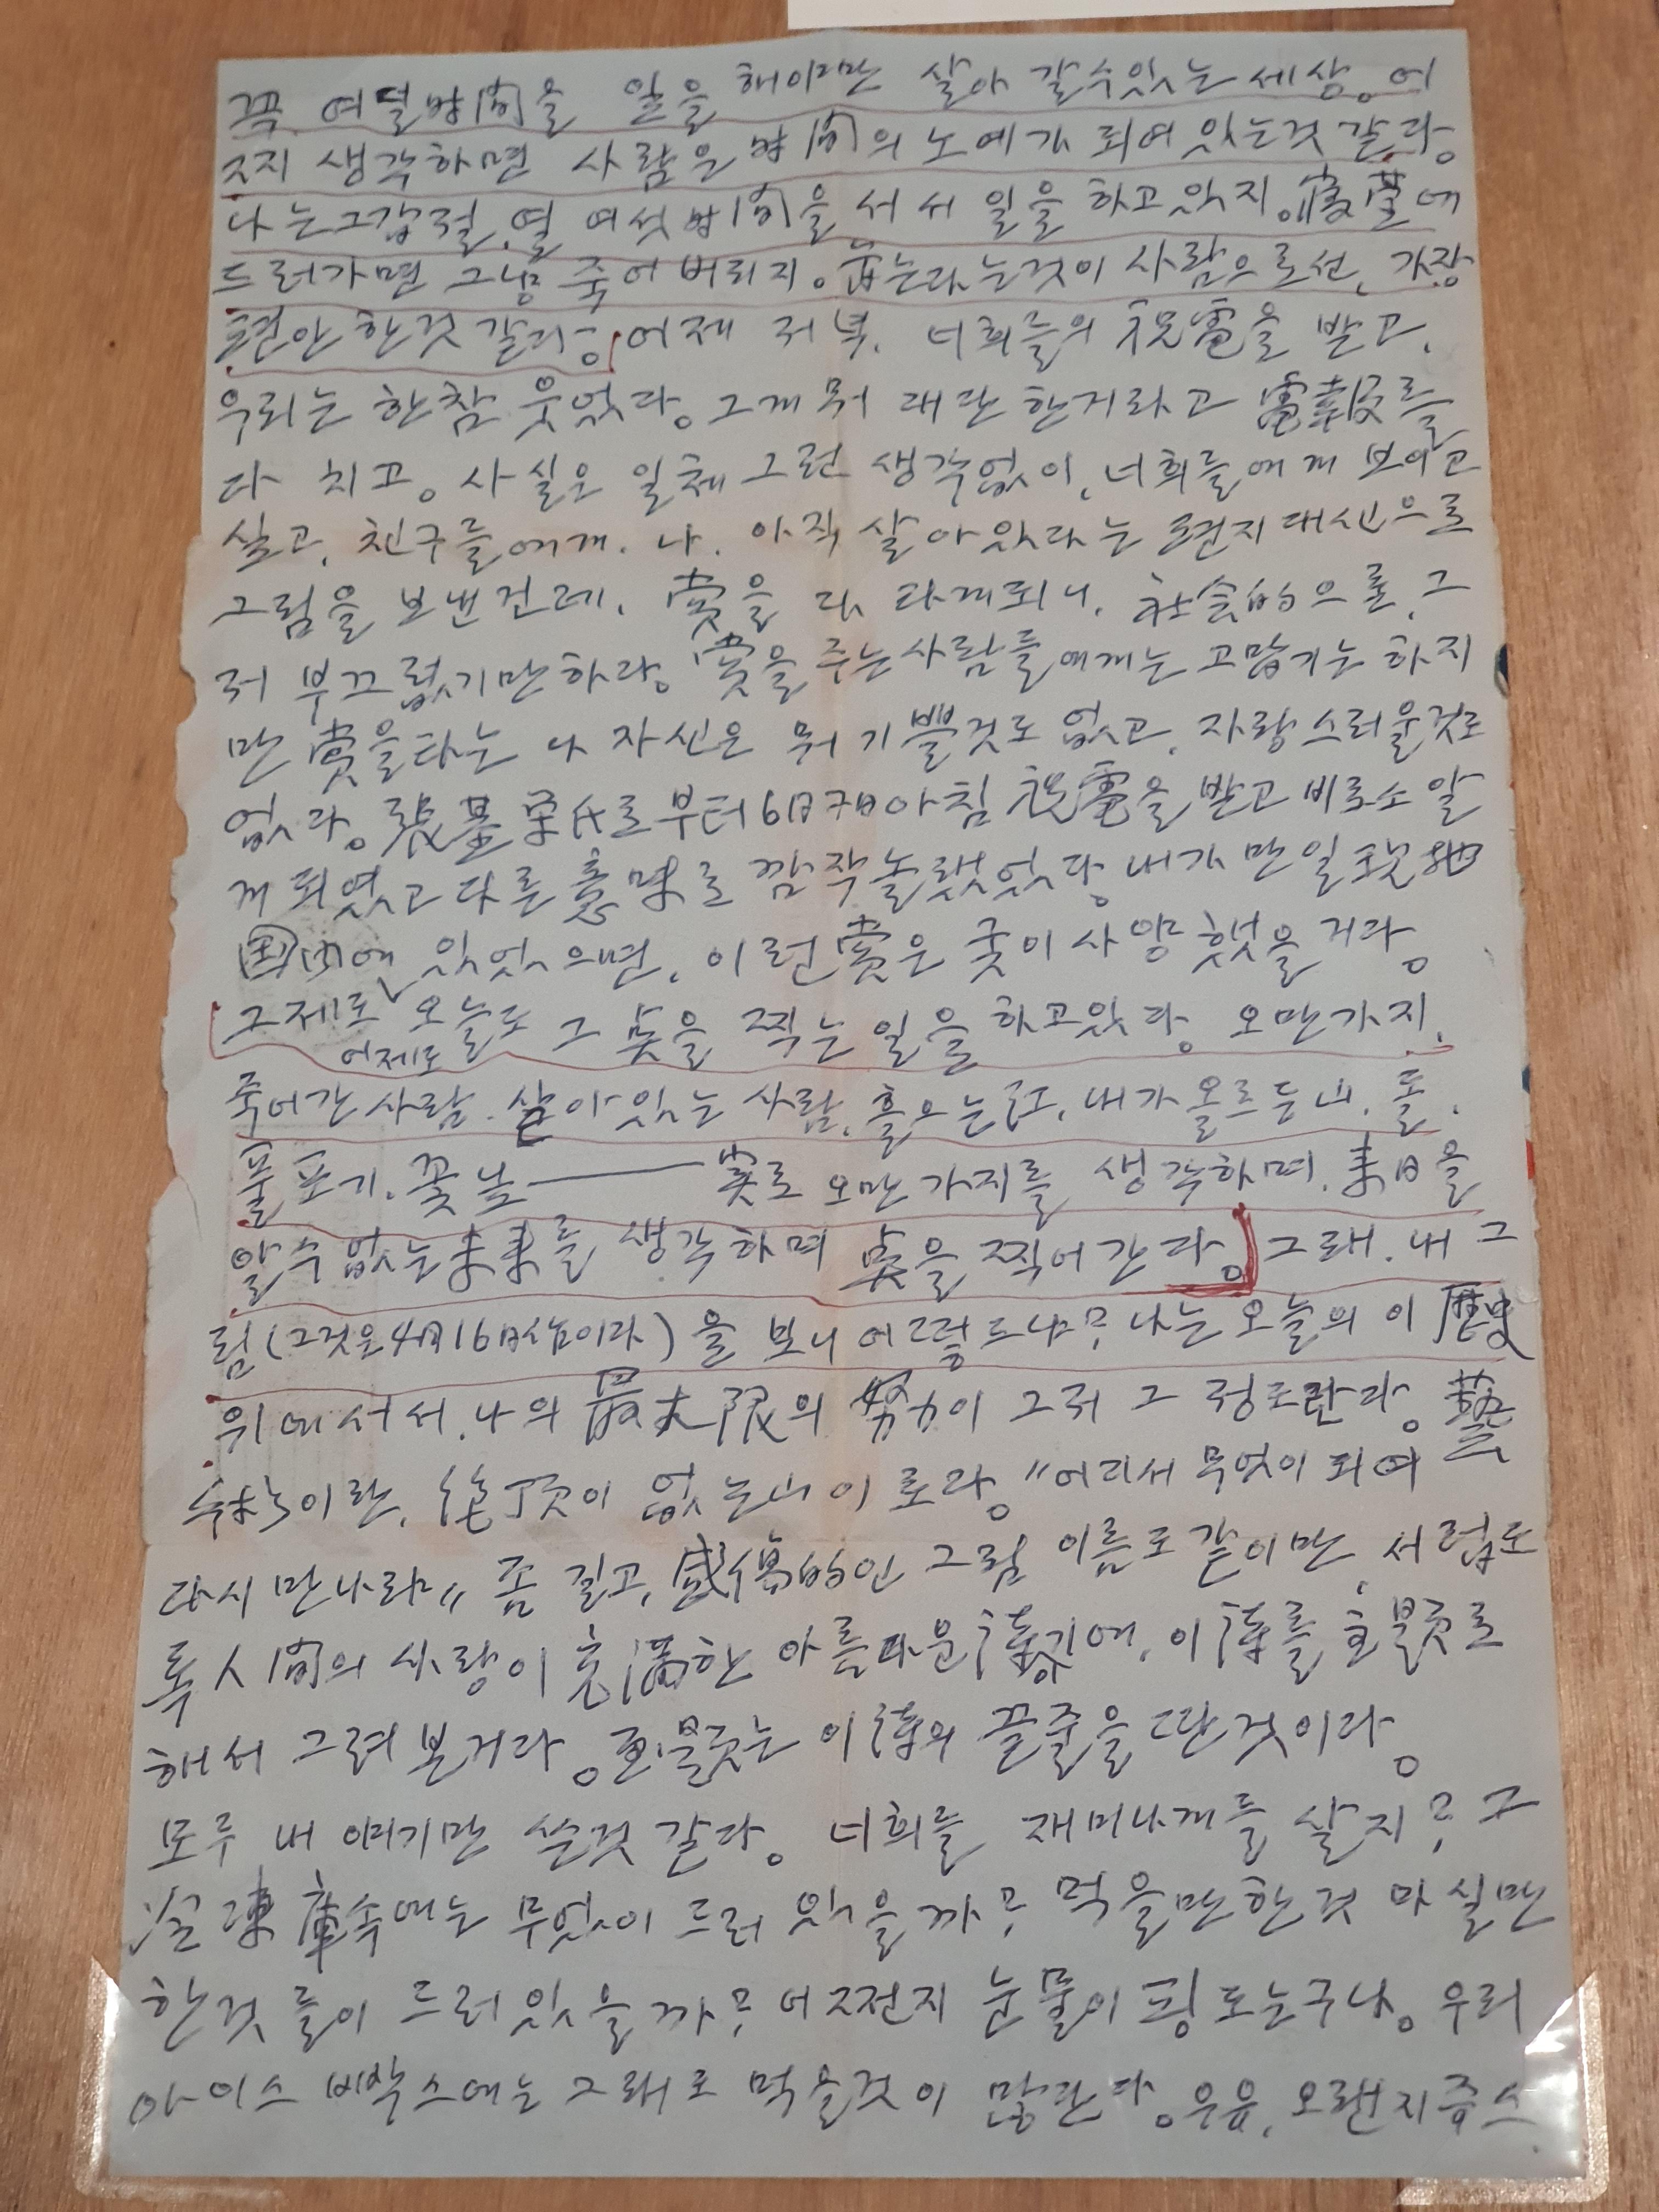 꼭 여덜時間을 일을 해야만 살아 갈수있는 세상。어
쯔지 생각하면 사람은 時間의 노예가 되어 있는것 같다。
나는그갑절, 열 여섯時間을 서서 일을 하고있지。寢臺에
드러가면 그냥 죽어 버리지。눕는다는것이 사람으로선, 가장
편안 한것 같다。어제 저녁, 너희들의 祝電을 받고,
우리는 한참 웃었다。그게 뭐 대단 한거라고 電報를
다 치고。사실은 일체 그런 생각없이, 너희들에게 보이고
싶고, 친구들에게, 나, 아직 살아있다는 편지대신으로
그림을 보낸건데, 賞을 다 타게되니, 社会的으로, 그
저 부끄럽기만하다。賞을 주는사람들에게는 고맙기는 하지
만 賞을타는 나 자신은 뭐 기쁠것도 없고, 자랑스러울것도
없다。張基榮氏로부터 6日7日아침 祝電을 받고 비로소 알
게되였고 다른 意味로 깜작놀랬었다。내가 만일 現地
国内에 있었으면, 이런賞은 굳이 사양했을 거다。
그제도 어제도 오늘도 그 点을 찍는 일을 하고있다。오만가지,
죽어간 사람, 살아 있는 사람, 흘으는江, 내가 올르든山, 돌,
풀포기, 꽃닢 ─── 実로 오만가지를 생각하며, 来日을
알수없는 未来를 생각하며 点을 찍어간다。그래, 내 그
림(그것은 4月16日作이다)을 보니 어떻드냐? 나는 오늘의 이 歴史
위에서서, 나의 最大限의 努力이 그저 그 정도란다。藝
術이란, 絶頂이 없는山이로다。"어디서 무엇이 되여
다시 만나랴" 좀 길고, 感傷的인 그림 이름도 같이만, 서럽도
록 人間의 사랑이 充満한 아름다운 詩기에, 이 詩를 主題로
해서 그려 본거다。画題는 이 詩의 끝줄을 딴 것이다。
모두 내 얘기만 쓴것 같다。너희들 재미나게들 살지? 그
冷凍庫속에는 무엇이 드러 있을까? 먹을만한것 마실만
한것 들이 드러있을까? 어쩐지 눈물이 핑 도는구나。우리
아이스 빡스에는 그래도 먹을것이 많단다。우유, 오랜지쥬스